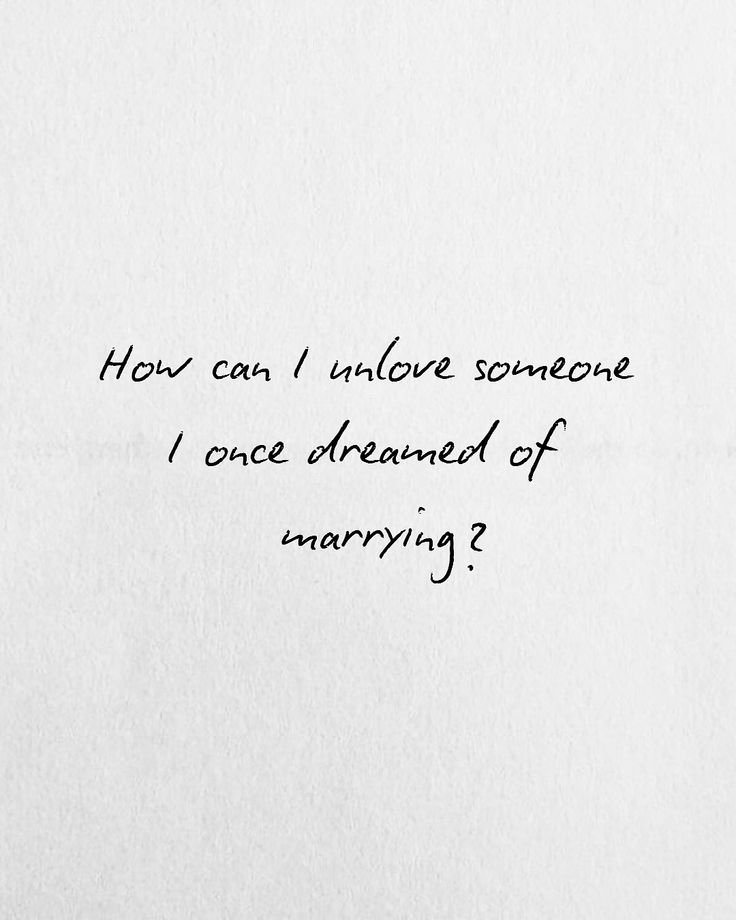 How can I unlove someone
I once dreamed of
marrying?